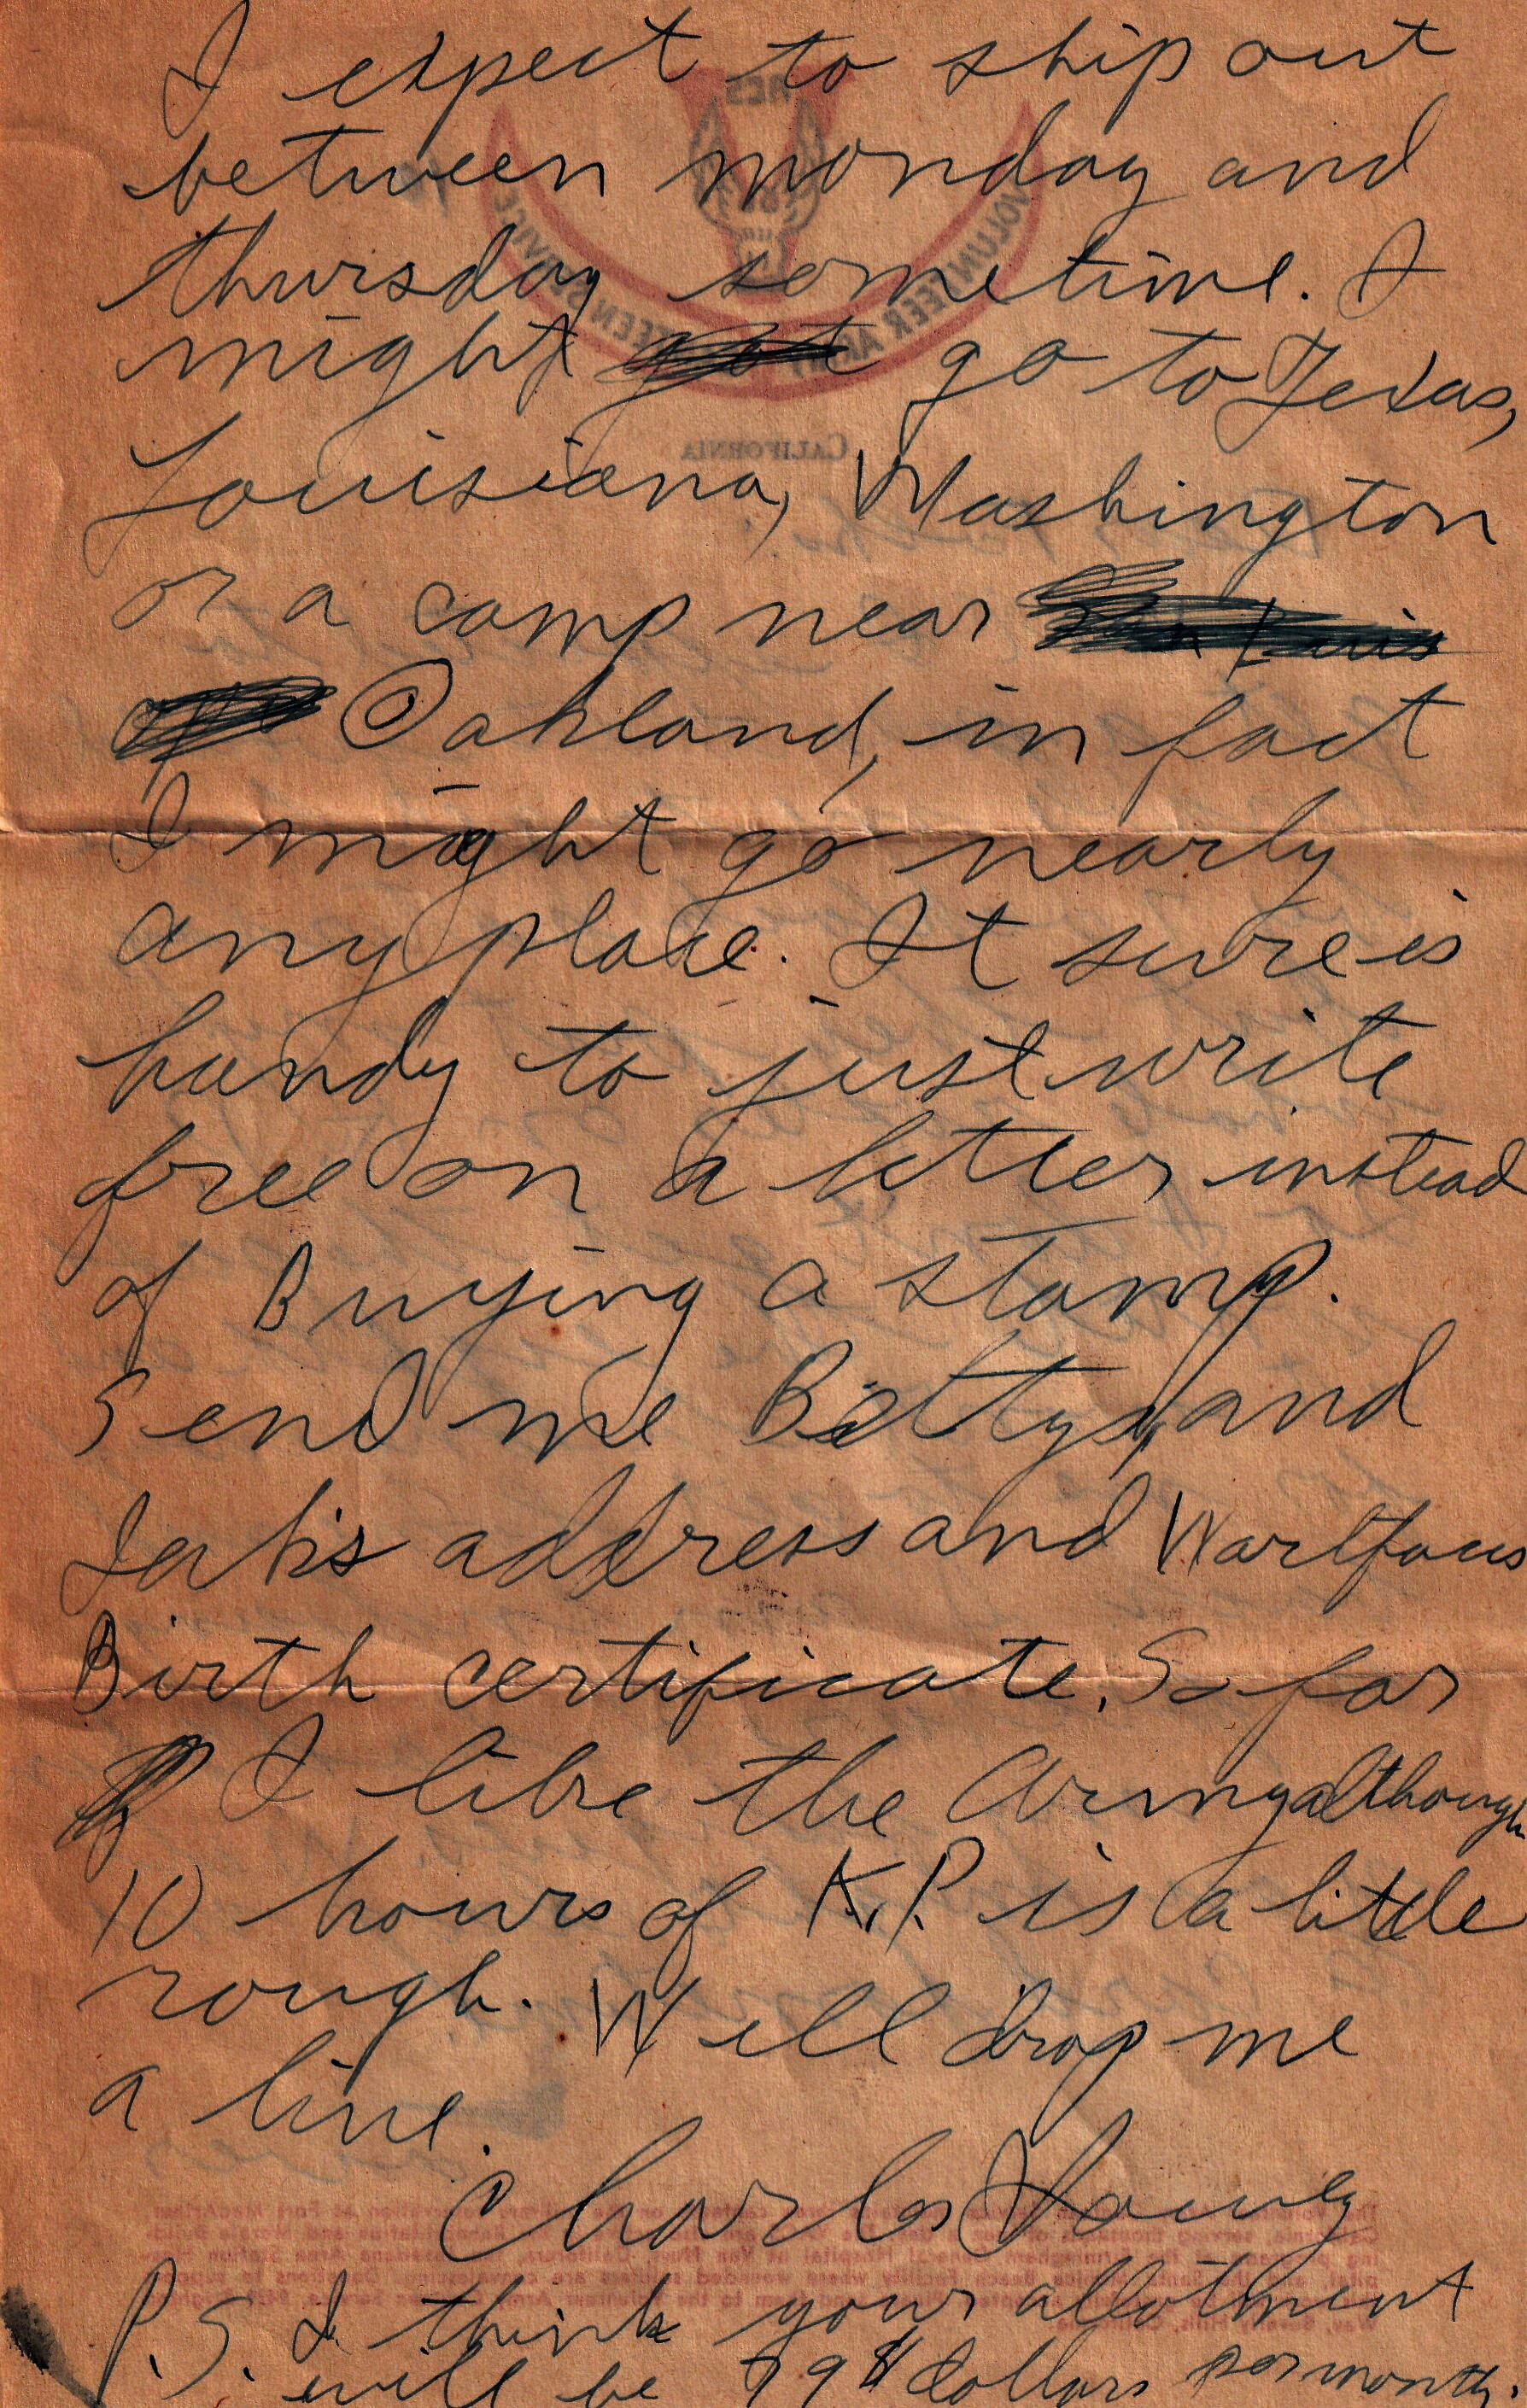 I expect to ship out
between monday and
thursday sometime. I
might got go to Texas,
Louisiana, Washington
or a camp near Luis
Oakland, in fact
I might go nearly
any place. It sure is
handy to just write
free on a letter instead
of Buying a stamp.
Send me Bettys, and
Jack's address and
Birth certificate. So far
I like the Army although
10 hours of K.P. is a little
rough. Well drop me
a line.
Charles Young
P.S. I think your allotment
will be dollars per month.
VOLUNTEER ARMY CANTEEN SERVICE
CALIFORNIA